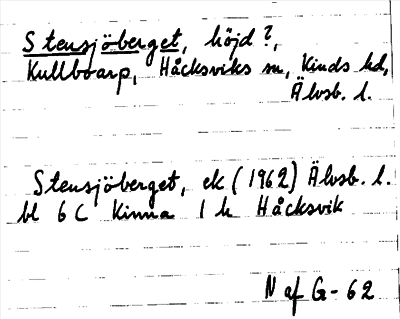 Stensjöberget, höjd?,
Kullboarp, Håcksviks sn, Kinds hd,
Älvsb. l.
Stensjöberget, ek (1962) Älvsb. l.
bl 6 C Kinna 1 h Håcksvik
N af G-62